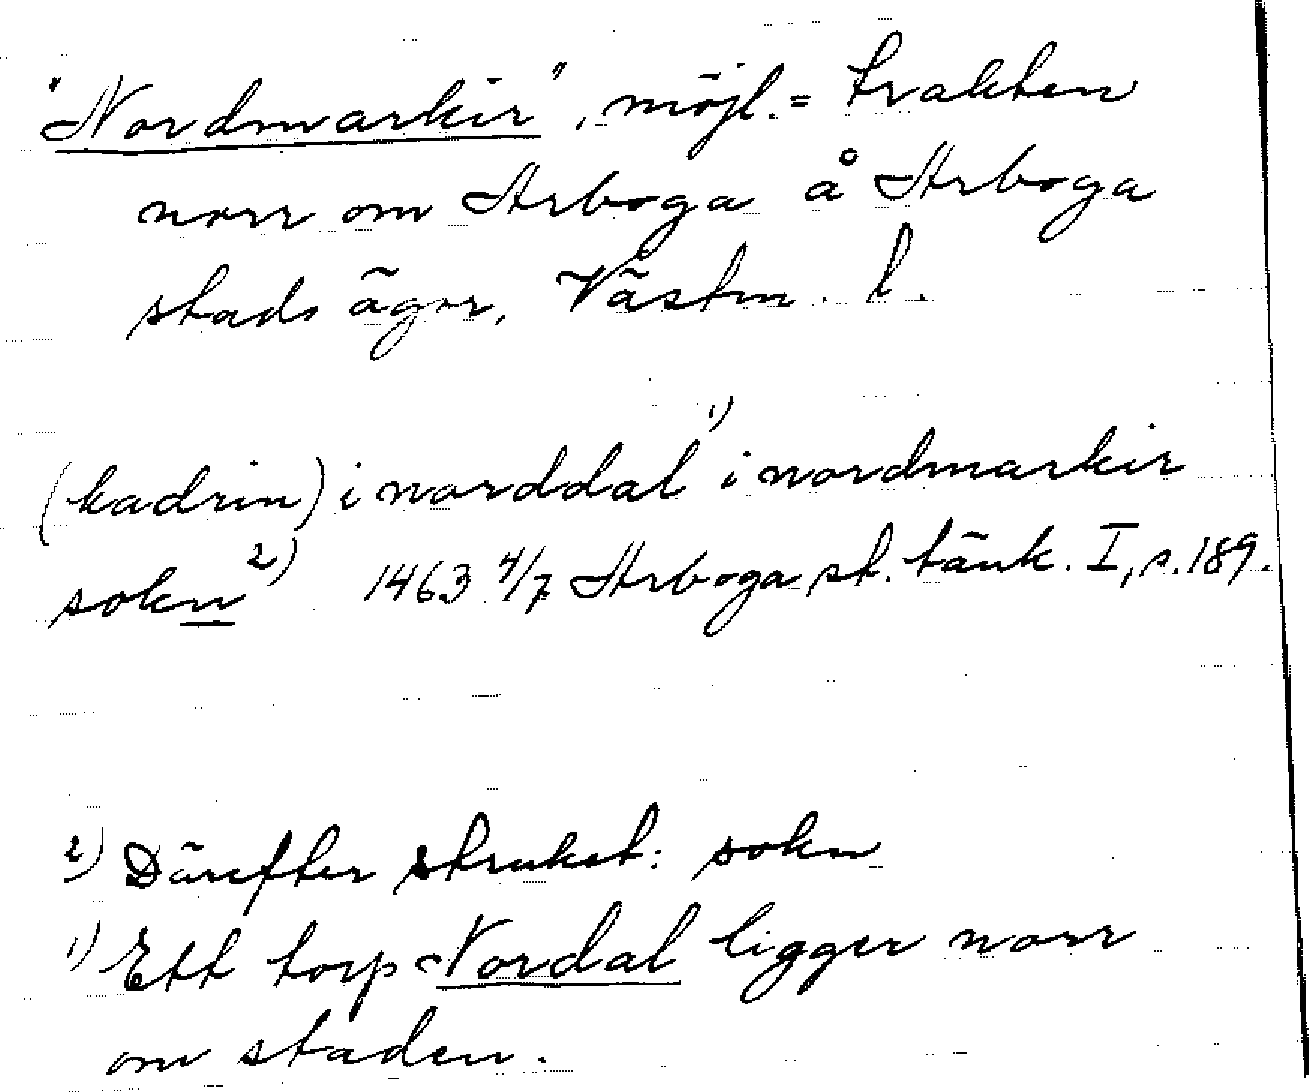 "Nordmarkir", möjl. = trakten
norr om Arboga å Arboga
stads ägor, Västm. l.
(kadrin) i norddal 1) i nordmarkir
sokn 2) 1463 4/7 Arboga st. tänk. I, s. 189.
2) Därefter struket: sokn
1) Ett torp Nordal ligger norr
om staden.